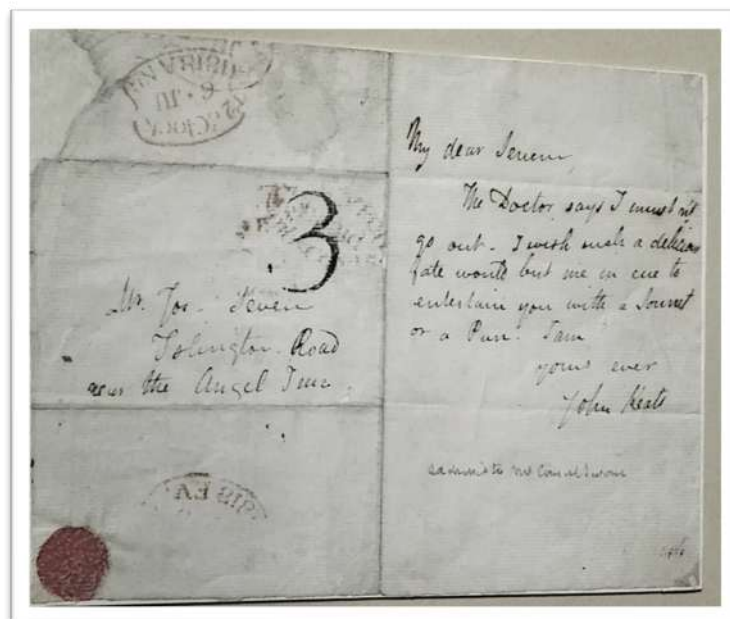 3
Mr. Jos. Severn
Islington Road
near the Angel Inn.
My dear Severn,
The Doctor says I must n't
go out. I wish such a delicious
fate would put me in cue to
entertain you with a Sonnet
or a Pun. I am
yours ever
John Keats